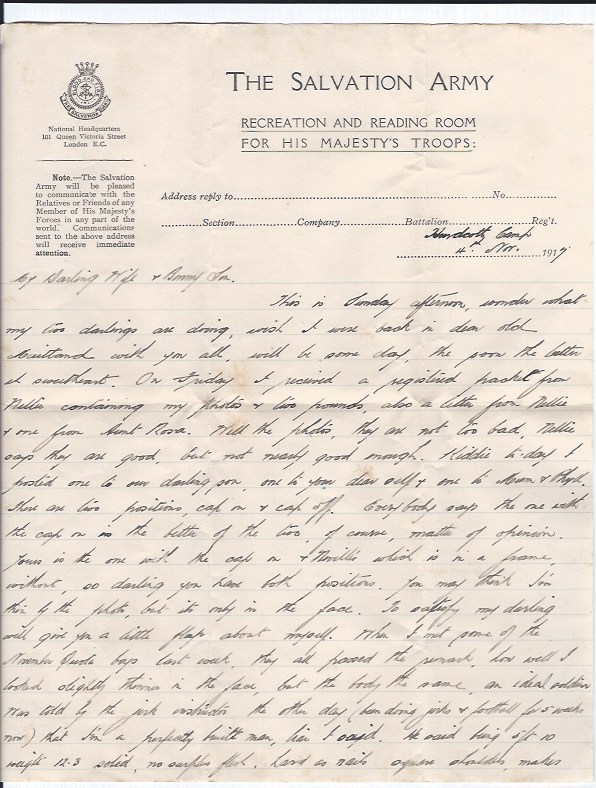 THE SALVATION ARMY
RECREATION AND READING ROOM
FOR HIS MAJESTY'S TROOPS:
BLOOD AND FIRE
THE SALVATION ARMY
National Headquarters
101 Queen Victoria Street
London E.C.
Note.—The Salvation
Army will be pleased
to communicate with the
Relatives or Friends of any
Member of His Majesty's
Forces in any part of the
world. Communications
sent to the above address
will receive immediate
attention.
Address reply to No.
Section Company Battalion Reg't.
Hurdcott Camp
4th Nov. 1917
My Darling Wife & Bonny Son.
This is Sunday afternoon, wonder what
my two darlings are doing, wish I were back in dear old
Maitland with you all, will be some day, the soon the better
eh sweetheart. On Friday I received a registered packet from
Nellie containing my photos & two pounds, also a letter from Nellie
& one from Aunt Rosa. Well the photos, they are not too bad, Nellie
says they are good, but not nearly good enough. Kiddie to-day I
posted one to our darling son, one to your dear self & one to Mum &
There are two positions, cap on & cap off. Everybody says the one with
the cap on is the better of the two, of course, matter of opinion.
Yours is the one with the cap on & which is in a frame
without, so darling you have both positions. You may think I'm
thin by the photo, but its only in the face. To satisfy my darling
will give you a little about myself. When I met some of the
November Quota boys last week, they all passed the remark, how well I
looked slightly thinner in the face, but the body the same, an ideal soldier
Was told by the jerk instructor the other day (been doing jerks & football for 5 weeks
now) that I'm a perfectly built man, I said. He said being 5ft 10
weight 12-3 solid, no surplus flesh, hard as nails square shoulders, makes